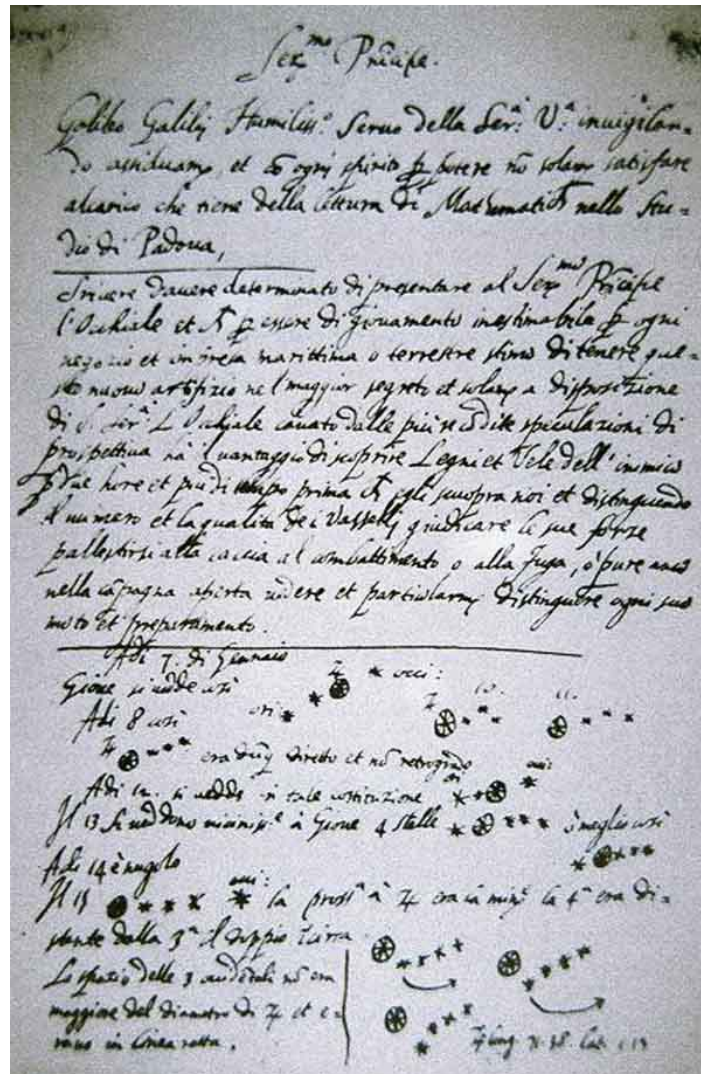 Ser.mo Prīcipe.
Galileo Galilej Humiliss.o Seruo della Ser.a V.a inuigilan=
do assiduam.e, et cō ogni spirito p potere nō solam.e satisfare
alcarico che tiene della lettura di Mathematich nello Stu=
dio di Padoua,
Scriuere dauere determinato di presentare al Ser.mo Prīcipe
l'Occhiale et p essere di giouamento inestimabile p ogni
negozio et impresa marittima o terrestre stimo di tenere que=
sto nuouo artifizio nel maggior segreto et solam.e a disposizione
di S. Ser.a L'Occhiale cauato dalle piu recōdite speculazioni di
prospettiua hà il uantaggio di scoprire Legni et Vele dell'inimico
p due hore et piu di tempo prima ch egli scuopra noi et distinguendo
il numero et la qualita de i Vasselli giudicare le sue forze
pallestirsi alla caccia al combattimento o alla fuga, ò pure anco
nella cāpagna aperta uedere et particolarm.e distinguere ogni suo
moto et preparamento.
Adi 7. di Gennaio
Gione si uedde cosi ♃ occi:
Adi 8 cosi ori: ♃ 10. 11.
♃ era dūq diretto et nō retrogrado
Adi 12. si uedde in tale costituzione ori occi
Il 13 si ueddono uiciniss.e à Gioue 4 stelle ò meglio cosi
Adi 14 è nugolo
Il 15 occi: la pross.a à ♃ era la min.e la 4.a era di=
stante dalla 3.a il doppio Circa
Lo spazio delle 3 occidētali nō era
maggiore del diametro di ♃ et e=
rano in linea retta.
♃ long. 71.38. Lat. 1.13